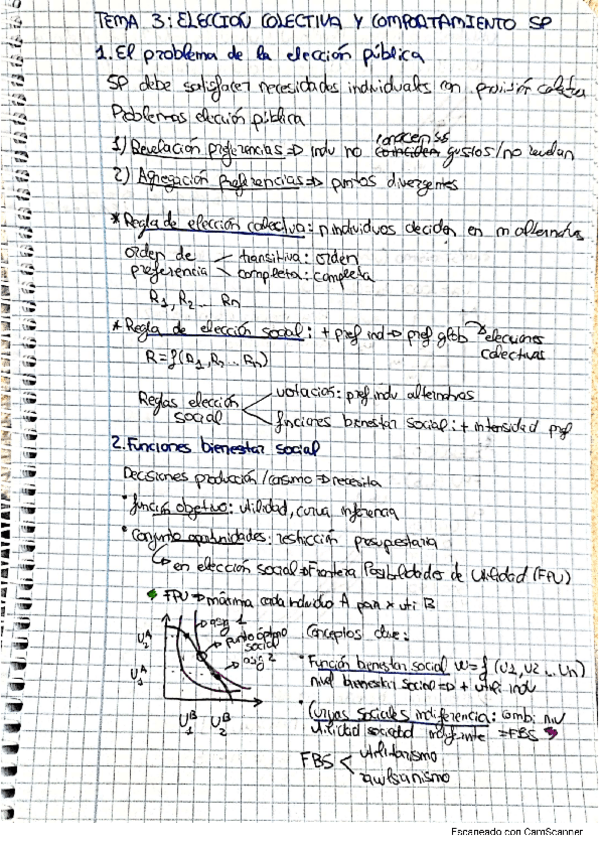 TEMA 3: ELECCIÓN COLECTIVA Y COMPORTAMIENTO SP
1. El problema de la elección pública
SP debe satisfacer necesidades individuales con provisión colectiva
Problemas elección pública
1) Revelación preferencias => indv no conocen sus gustos/no revelan
2) Agregación preferencias => puntos divergentes
* Regla de elección colectiva: n individuos deciden en m alternativas
orden de preferencia
transitiva: orden
completa: completa
R1, R2 ... Rn
* Regla de elección social: + pref ind -> pref glob -> elecciones colectivas
R = f(R1, R2 ... Rn)
Reglas elección social
votacios: pref. indv alternativas
funciones bienestar social: + intensidad pref
2. Funciones bienestar social
Decisiones producción / => necesita
* función objetivo: utilidad, curva
* Conjunto oportunidades: restricción presupuestaria
en elección social => Frontera Posibilidades de Utilidad (FPU)
FPU => máxima cada individuo A para x uti B
U2A
U1A
U1B U2B
asig 1
punto óptimo social
asig 2
Conceptos clave:
* Función bienestar social W = f (U1, U2 ... Un)
nivel bienestar social => + utili indv
* Curvas sociales indiferencia: combi niv
utilidad sociedad = FBS
FBS
utilitarismo
rawlsanismo
Escaneado con CamScanner